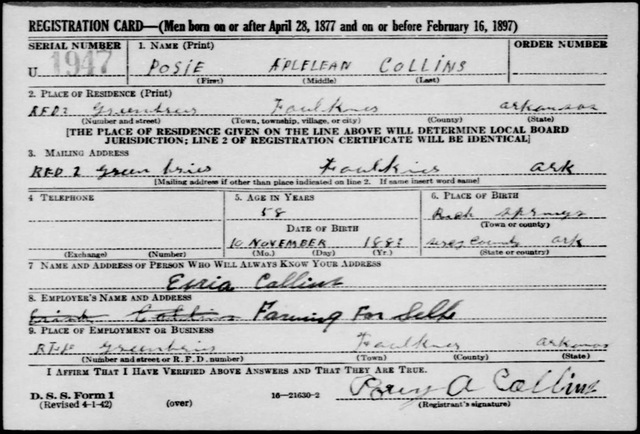 REGISTRATION CARD—(Men born on or after April 28, 1877 and on or before February 16, 1897)
SERIAL NUMBER 1. NAME (Print) ORDER NUMBER
U 1947 POSIE APLELEAN COLLINS
(First) (Middle) (Last)
2. PLACE OF RESIDENCE (Print)
RFD 2 Greenbrier Faulkner arkansas
(Number and street) (Town, township, village, or city) (County) (State)
[THE PLACE OF RESIDENCE GIVEN ON THE LINE ABOVE WILL DETERMINE LOCAL BOARD
JURISDICTION; LINE 2 OF REGISTRATION CERTIFICATE WILL BE IDENTICAL]
3. MAILING ADDRESS
RFD 2 Green brier Faulkner ark
[Mailing address if other than place indicated on line 2. If same insert word same]
4 TELEPHONE 5. AGE IN YEARS 6. PLACE OF BIRTH
58
DATE OF BIRTH (Town or county)
10 NOVEMBER 1883 county ark
(Exchange) (Number) (Mo.) (Day) (Yr.) (State or country)
7 NAME AND ADDRESS OF PERSON WHO WILL ALWAYS KNOW YOUR ADDRESS
Collins
8. EMPLOYER'S NAME AND ADDRESS
Farming For Selfe
9. PLACE OF EMPLOYMENT OR BUSINESS
Greenbrier Faulkner arkansas
(Number and street or R. F. D. number) (Town) (County) (State)
I AFFIRM THAT I HAVE VERIFIED ABOVE ANSWERS AND THAT THEY ARE TRUE.
A Collins
D. S. S. Form 1
(Revised 4-1-42) (over) 16—21630-2 (Registrant's signature)